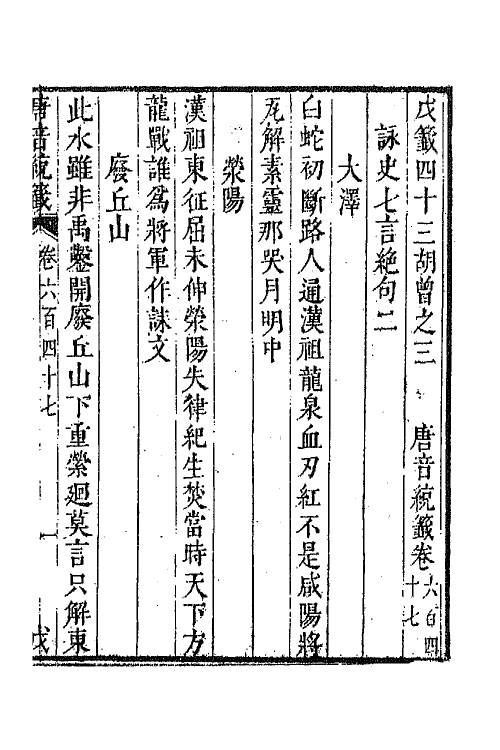 戊籖四十三胡曾之三　唐音統籖卷六百四十七
詠史七言絶句二
大澤
白蛇初斷路人通漢祖龍泉血刃紅不是咸陽將
瓦解素靈那哭月明中
滎陽
漢祖東征屈未伸滎陽失律紀生焚當時天下方
龍戰誰爲將軍作誄文
廢丘山
此水雖非禹鑿開廢丘山下重縈廻莫言只解東
唐音統籖
卷六百四十七
一
戊